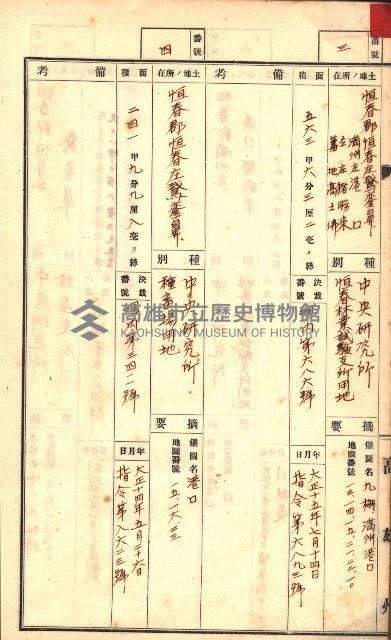 番號
三
土地ノ所在
恒春郡恒春庄鵞鑾鼻
滿州庄港口
仝 庄猪朥束
蕃地高士佛
面積
五六三甲六分三厘二毫〇絲
備考
種別
中央研究所
恒春林業試驗支所用地
決裁番號
第六八六號
摘要
堡圖名 九棚滿州港口
地圖番號
年月日
大正十五年七月十四日
指令第六八九三號
番號
四
土地ノ所在
恒春郡恒春庄鵞鑾鼻
面積
二四一甲九分九厘八毫〇絲
備考
種別
中央研究所
種畜場用地
決裁番號
第三四一號
摘要
堡圖名 港口
地圖番號
年月日
大正十四年五月二十六日
指令第八六二三號
高雄州
高雄市立歷史博物館
KAOHSIUNG MUSEUM OF HISTORY